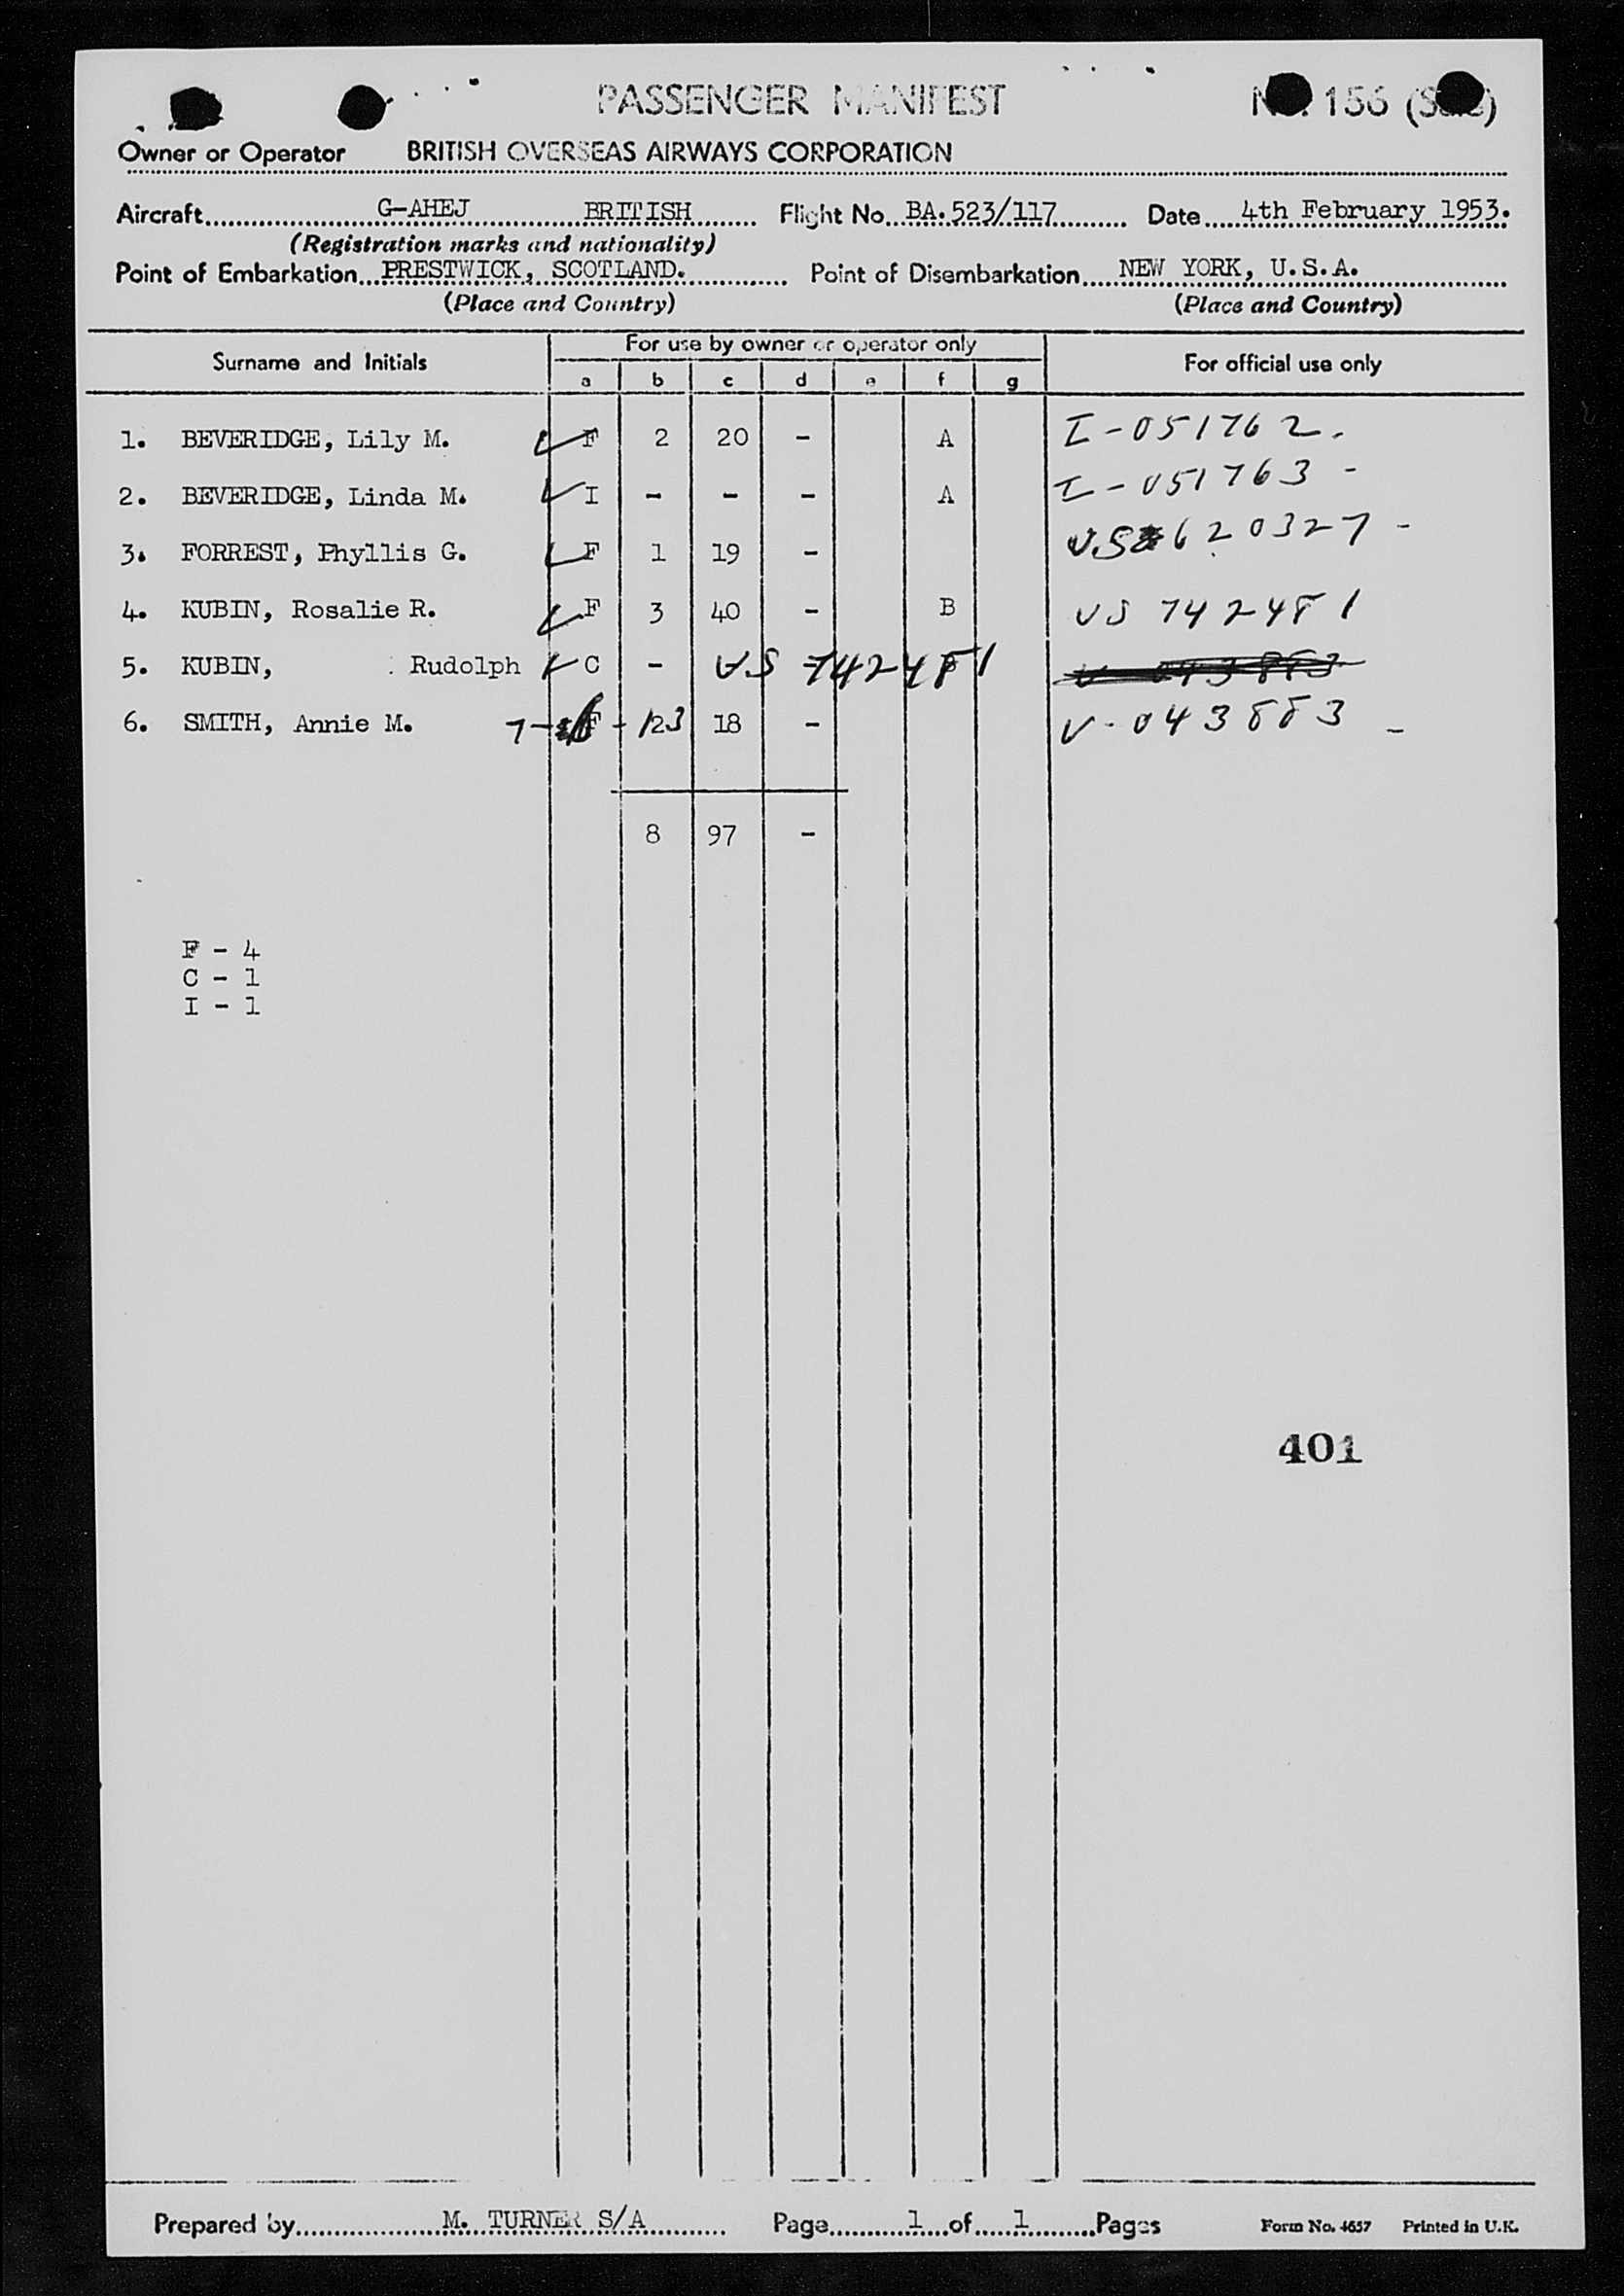 PASSENGER MANIFEST
156
Owner or Operator BRITISH OVERSEAS AIRWAYS CORPORATION
Aircraft G-AHEJ BRITISH Flight No. BA.523/117 Date 4th February 1953.
(Registration marks and nationality)
Point of Embarkation PRESTWICK, SCOTLAND. Point of Disembarkation NEW YORK, U.S.A.
(Place and Country) (Place and Country)
Surname and Initials For use by owner or operator only For official use only
a b c d e f g
1. BEVERIDGE, Lily M. F 2 20 - A I-051762.
2. BEVERIDGE, Linda M. I - - - A I-051763 -
3. FORREST, Phyllis G. F 1 19 - US 620327 -
4. KUBIN, Rosalie R. F 3 40 - B US 742481
5. KUBIN, Rudolph C - US 742481 V 043883
6. SMITH, Annie M. F 2 18 - V-043883 -
8 97 -
F - 4
C - 1
I - 1
401
Prepared by M. TURNER S/A Page 1 of 1 Pages Form No. 4657 Printed in U.K.